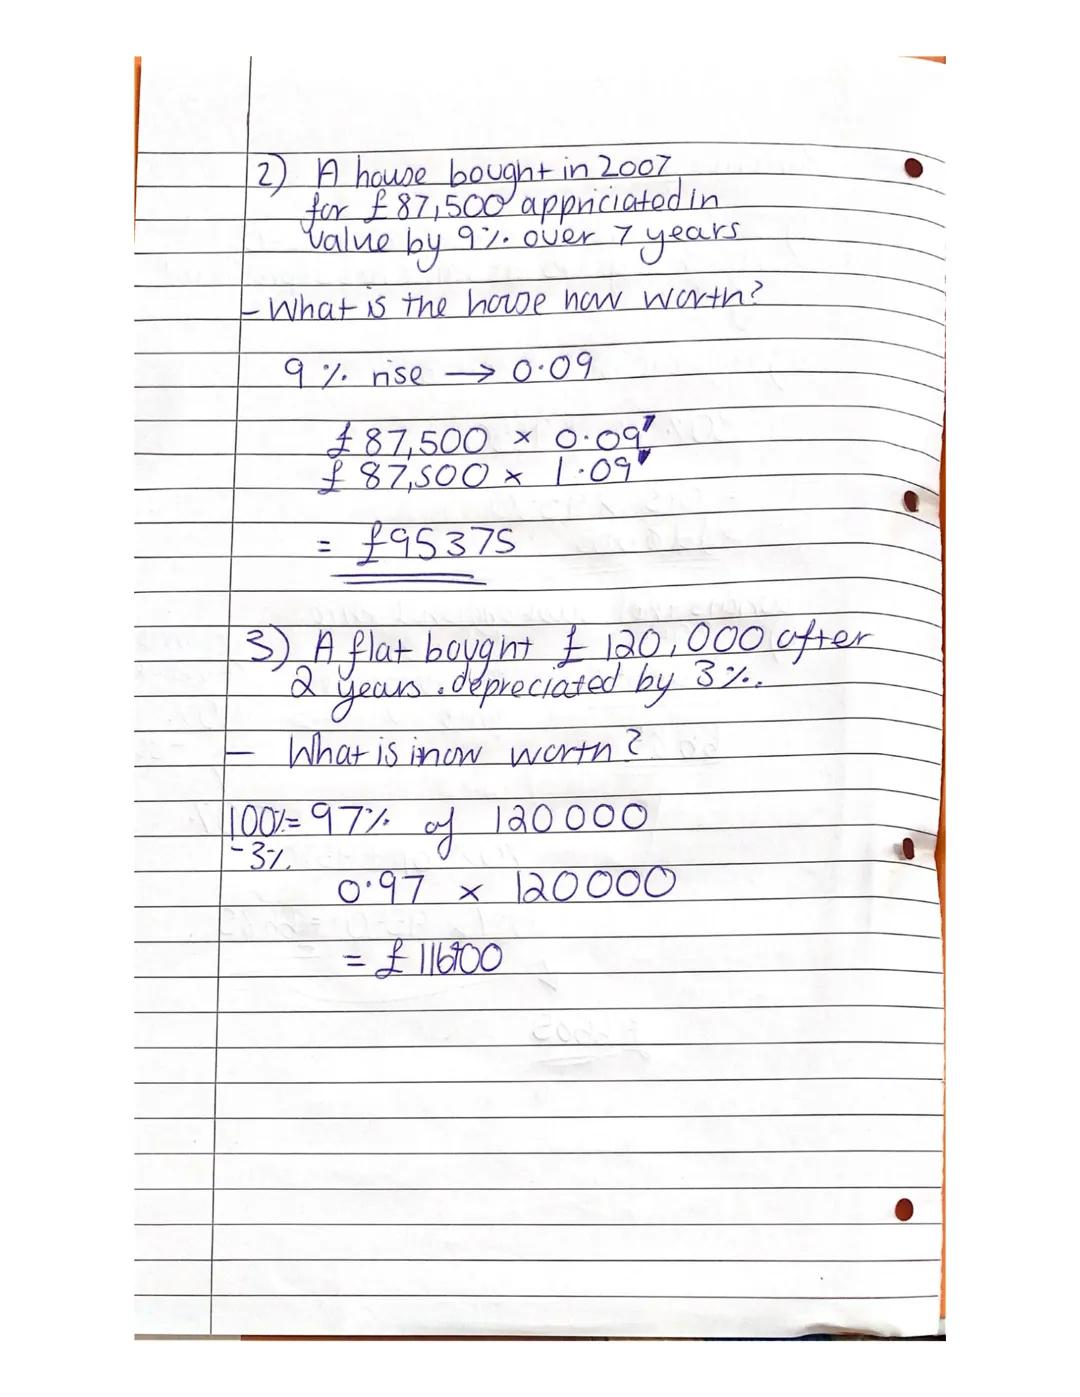 2) A house bought in 2007
for £87,500 appriciated in
value by 9% over 7 years
- What is the house now worth?
9% rise → 0.09
£87,500 × 0.09
£87,500 × 1.09
= £95375
3) A flat bought £120,000 after
2 years . depreciated by 3%.
- What is inow worth?
100%= 97% of 120000
-3%
0.97 × 120000
= £